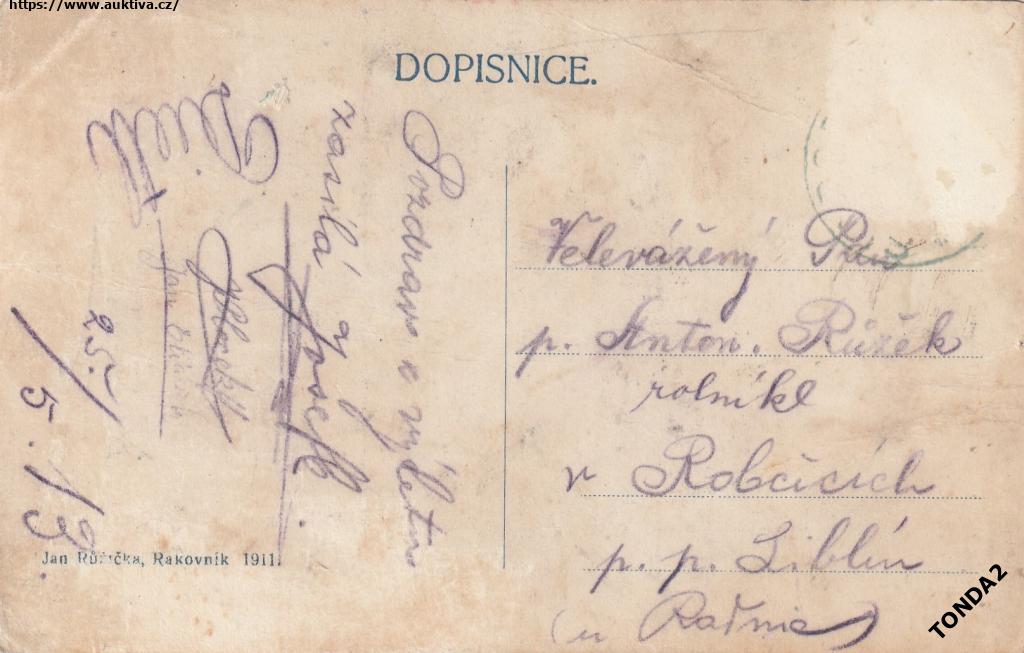 https://www.auktiva.cz/
DOPISNICE.
Pozdrav z výletu
zasílá
Josef
25./5. 13.
Velevážený Pan
p. Anton. Růžek
rolník
v Robčicích
p. p. Liblín
(u Radnic)
Jan Růžička, Rakovník 1911.
TONDA2